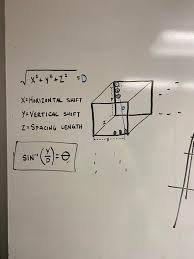 √X²+Y²+Z² = D
X = HORIZONTAL SHIFT
Y = VERTICAL SHIFT
Z = SPACING LENGTH
SIN⁻¹(Y/D) = Θ